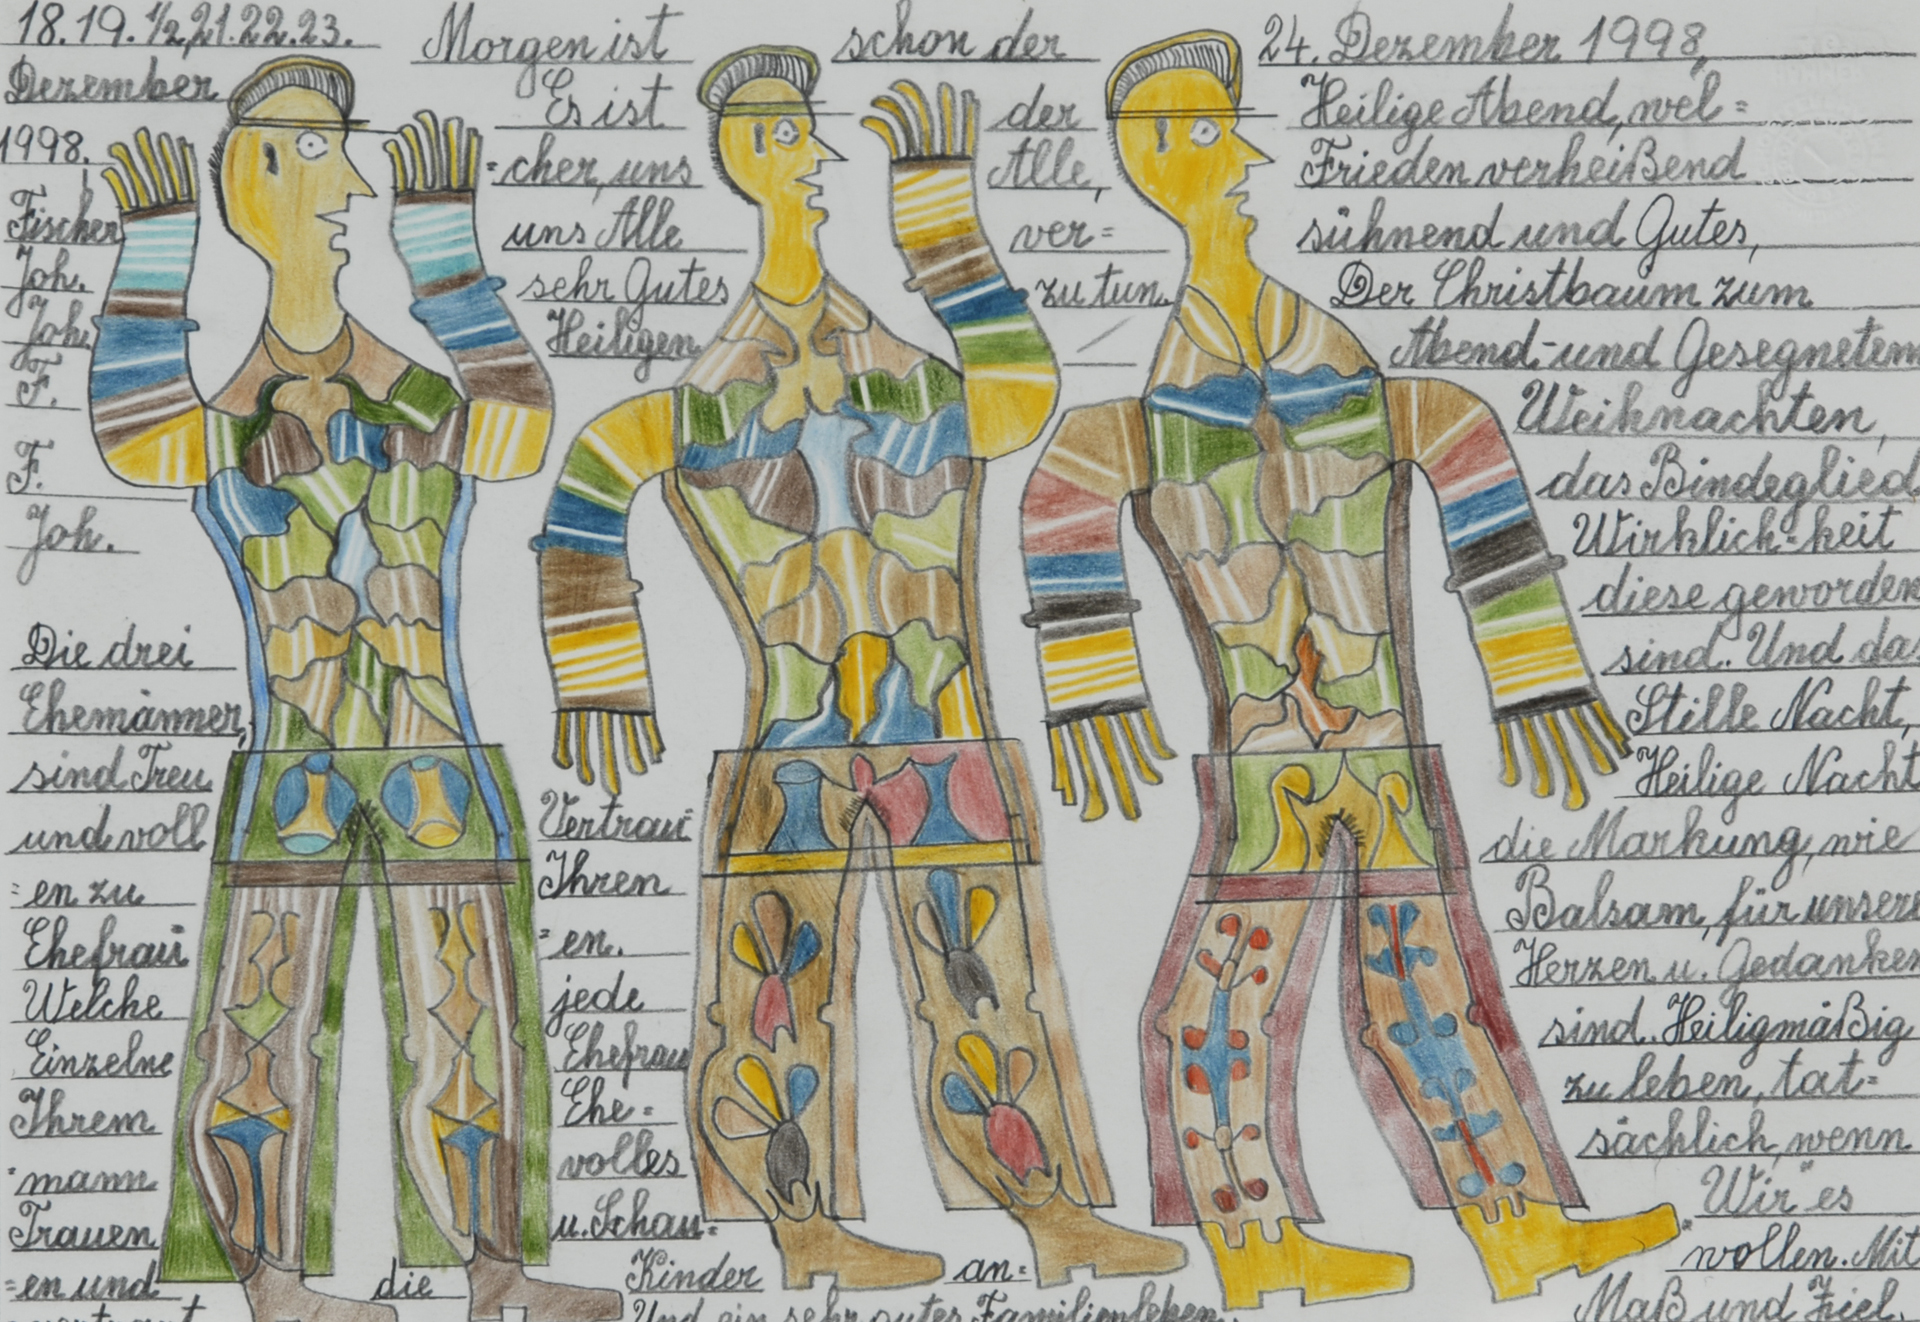 18.19.½,21.22.23. Morgen ist schon der 24. Dezember 1998,
Dezember Es ist der Heilige Abend, wel=
1998. =cher, uns Alle, Frieden verheißend
Fischer uns Alle ver= sühnend und Gutes,
Joh. sehr Gutes zu tun. Der Christbaum zum
Joh. Heiligen Abend-und Gesegnetem
F. Weihnachten,
F. das Bindeglied
Joh. Wirklich=keit
diese geworden
Die drei sind. Und das
Ehemänner, Stille Nacht,
sind Treu Heilige Nacht
und voll Vertrau= die Markung, wie
=en zu Ihren Balsam, für unsere
Ehefrau =en. Herzen u. Gedanken
Welche jede sind. Heiligmäßig
Einzelne Ehefrau zu leben, tat=
Ihrem Ehe= sächlich, wenn
=mann volles Wir" es
Trauen u. Schau= wollen. Mit
=en und die Kinder an= Maß und Ziel.
Und ein sehr gutes Familienleben.